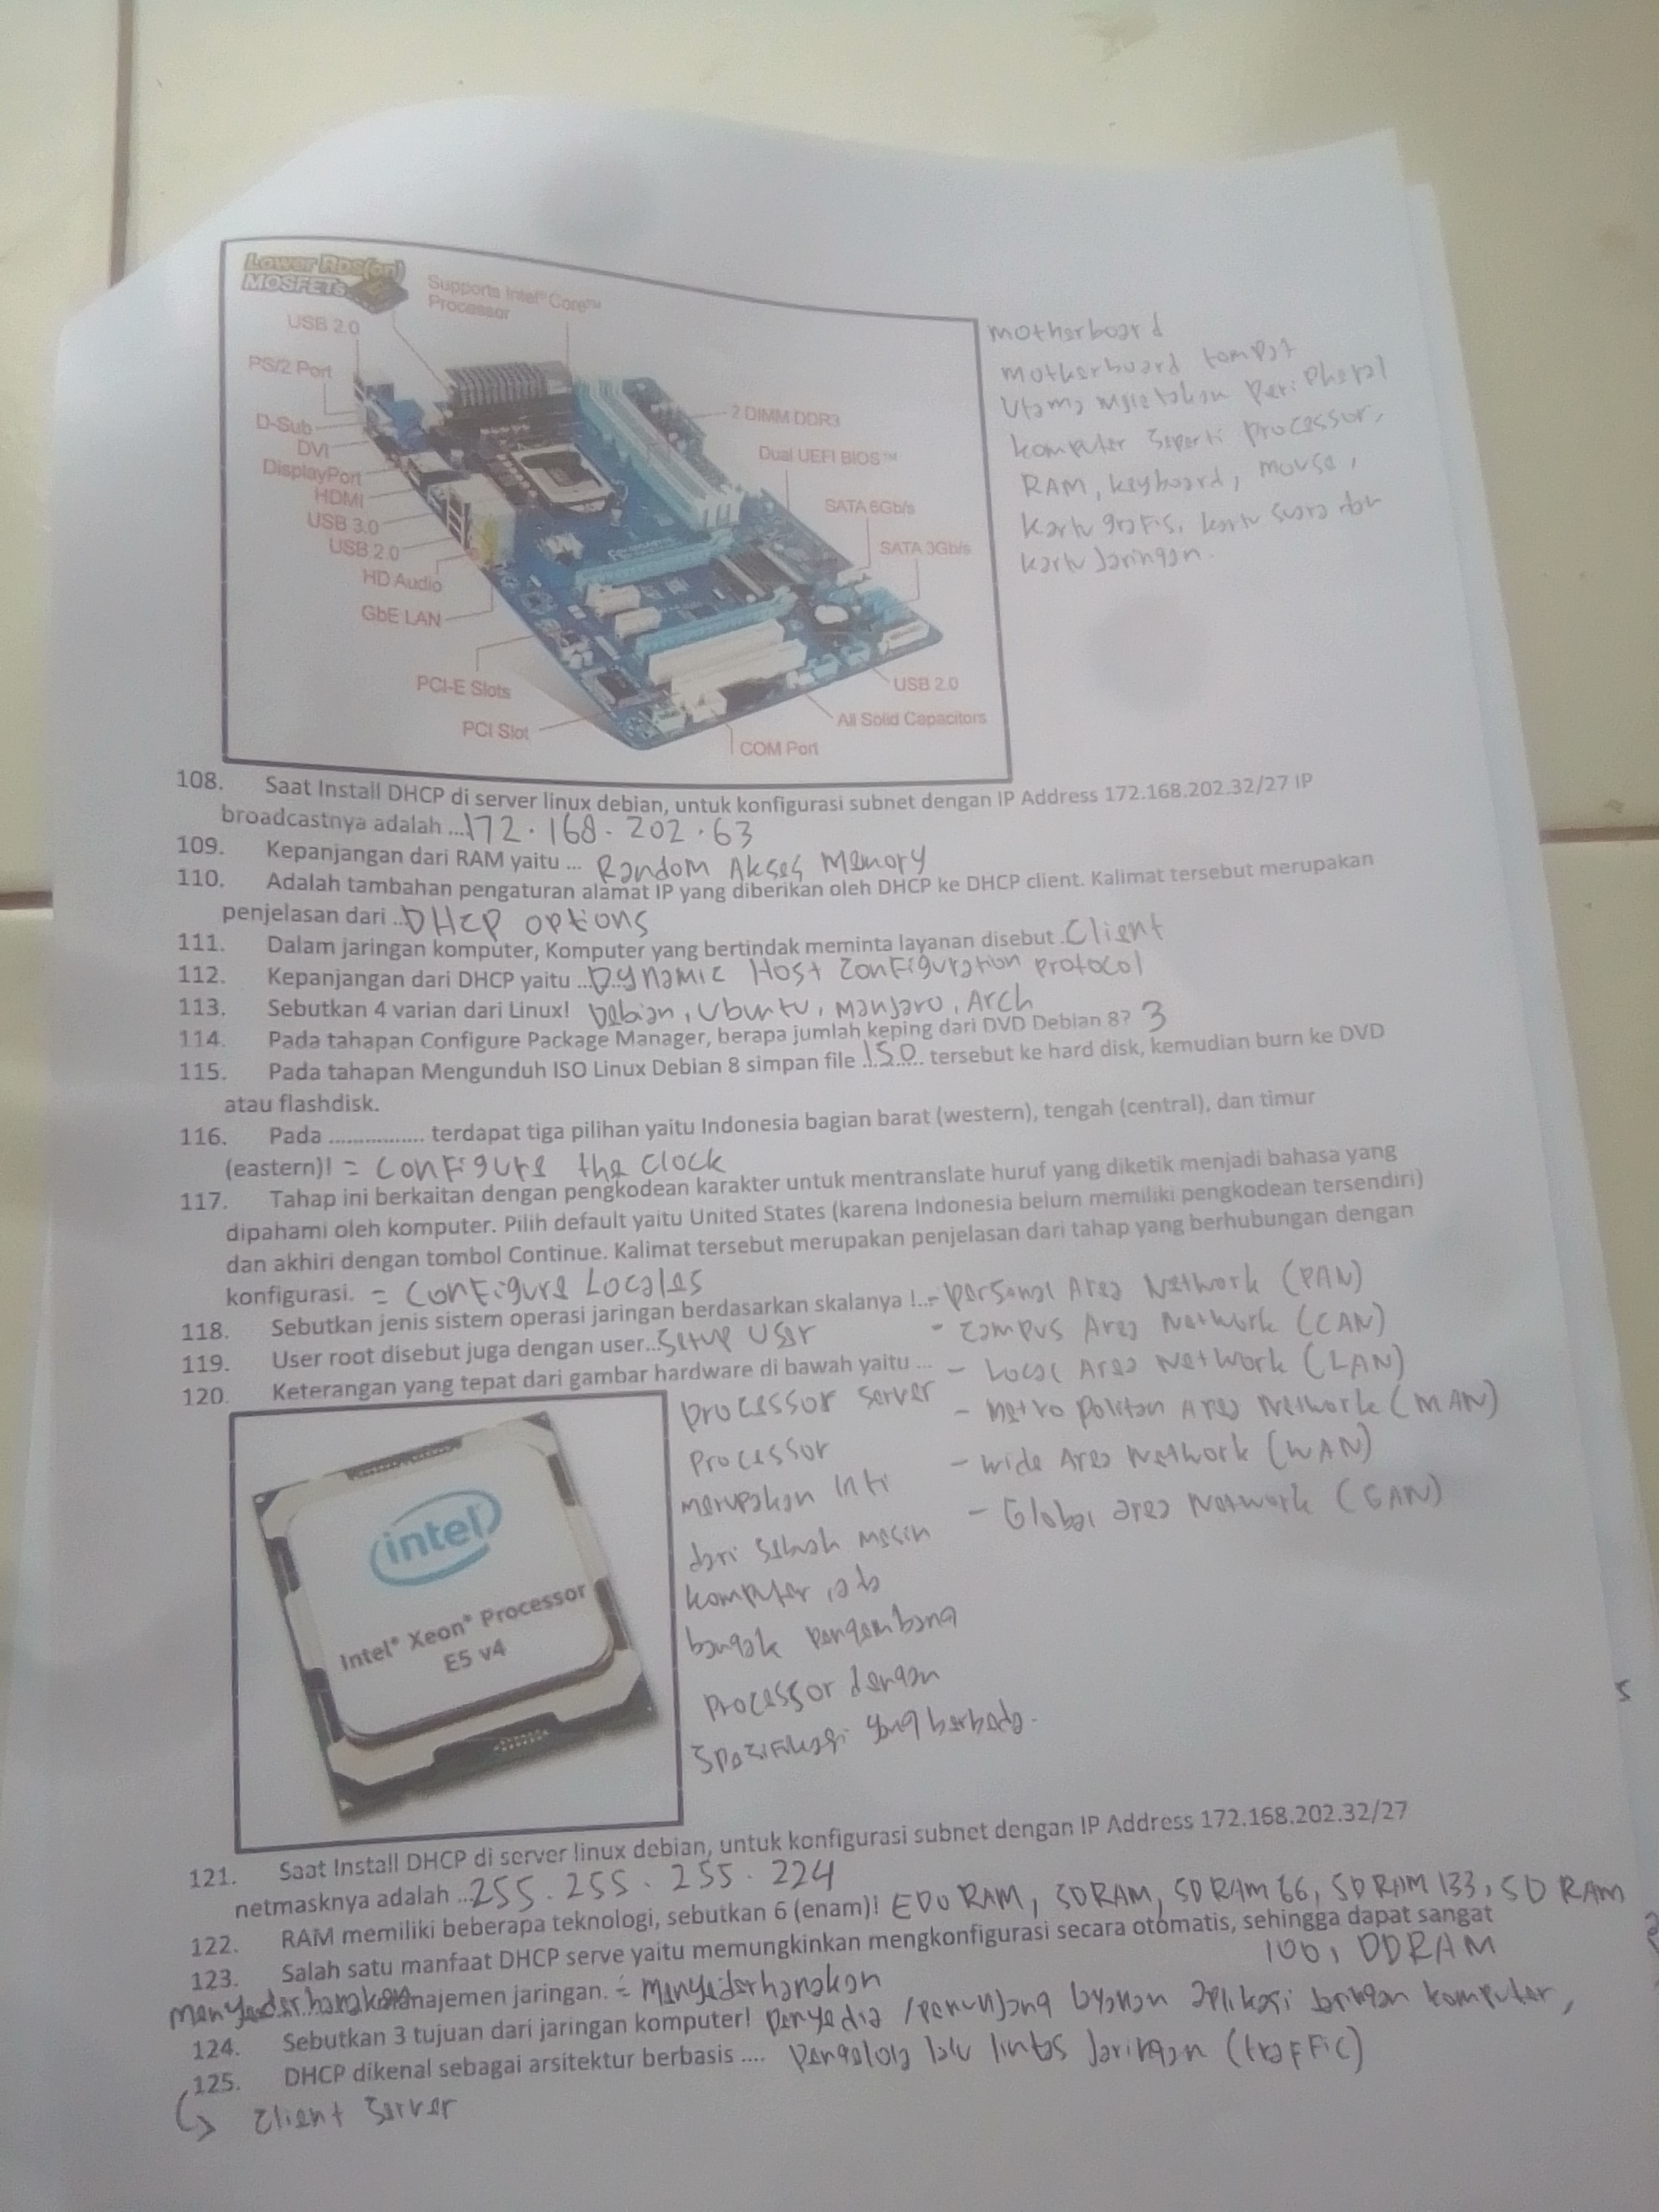 Lower Rds(on)
MOSFETs
Supports Intel® Core™
Processor
USB 2.0
PS/2 Port
D-Sub
DVI
DisplayPort
HDMI
USB 3.0
USB 2.0
HD Audio
GbE LAN
PCI-E Slots
PCI Slot
2 DIMM DDR3
Dual UEFI BIOS™
SATA 6Gb/s
SATA 3Gb/s
USB 2.0
All Solid Capacitors
COM Port
motherboard
motherboard tempat
utama meletakan Peripheral
komputer seperti processor,
RAM, keyboard, mouse,
kartu grafis, kartu suara dan
kartu Jaringan.
108. Saat Install DHCP di server linux debian, untuk konfigurasi subnet dengan IP Address 172.168.202.32/27 IP
broadcastnya adalah ...172.168.202.63
109. Kepanjangan dari RAM yaitu ... Random Akses Memory
110. Adalah tambahan pengaturan alamat IP yang diberikan oleh DHCP ke DHCP client. Kalimat tersebut merupakan
penjelasan dari ...DHCP options
111. Dalam jaringan komputer, Komputer yang bertindak meminta layanan disebut .Client
112. Kepanjangan dari DHCP yaitu ...Dynamic Host Configuration protocol
113. Sebutkan 4 varian dari Linux! Debian, Ubuntu, Manjaro, Arch
114. Pada tahapan Configure Package Manager, berapa jumlah keping dari DVD Debian 8? 3
115. Pada tahapan Mengunduh ISO Linux Debian 8 simpan file .ISO. tersebut ke hard disk, kemudian burn ke DVD
atau flashdisk.
116. Pada ................ terdapat tiga pilihan yaitu Indonesia bagian barat (western), tengah (central), dan timur
(eastern)! = Configure the Clock
117. Tahap ini berkaitan dengan pengkodean karakter untuk mentranslate huruf yang diketik menjadi bahasa yang
dipahami oleh komputer. Pilih default yaitu United States (karena Indonesia belum memiliki pengkodean tersendiri)
dan akhiri dengan tombol Continue. Kalimat tersebut merupakan penjelasan dari tahap yang berhubungan dengan
konfigurasi. = Configure Locales
118. Sebutkan jenis sistem operasi jaringan berdasarkan skalanya !..- Personal Area Network (PAN)
- Campus Area Network (CAN)
119. User root disebut juga dengan user...Setup User
- Local Area Network (LAN)
120. Keterangan yang tepat dari gambar hardware di bawah yaitu ...
- Metropolitan Area Network (MAN)
- Wide Area Network (WAN)
- Global area Network (GAN)
processor server
Processor
merupakan Inti
dari sebuah mesin
komputer
banyak pengembang
processor dengan
yang berbeda.
intel
Intel® Xeon® Processor
E5 v4
121. Saat Install DHCP di server linux debian, untuk konfigurasi subnet dengan IP Address 172.168.202.32/27
netmasknya adalah ...255.255.255.224
122. RAM memiliki beberapa teknologi, sebutkan 6 (enam)! EDO RAM, SDRAM, SD RAM 66, SD RAM 133, SD RAM
100, DDRAM
123. Salah satu manfaat DHCP serve yaitu memungkinkan mengkonfigurasi secara otomatis, sehingga dapat sangat
manajemen jaringan. = Menyederhanakan
124. Sebutkan 3 tujuan dari jaringan komputer! Penyedia / penunjang layanan aplikasi jaringan komputer,
Pengelola lalu lintas Jaringan (traffic)
125. DHCP dikenal sebagai arsitektur berbasis ....
Client Server